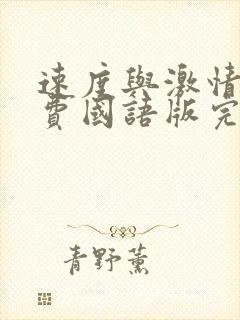 速度與激情
費國語版完
青野薰